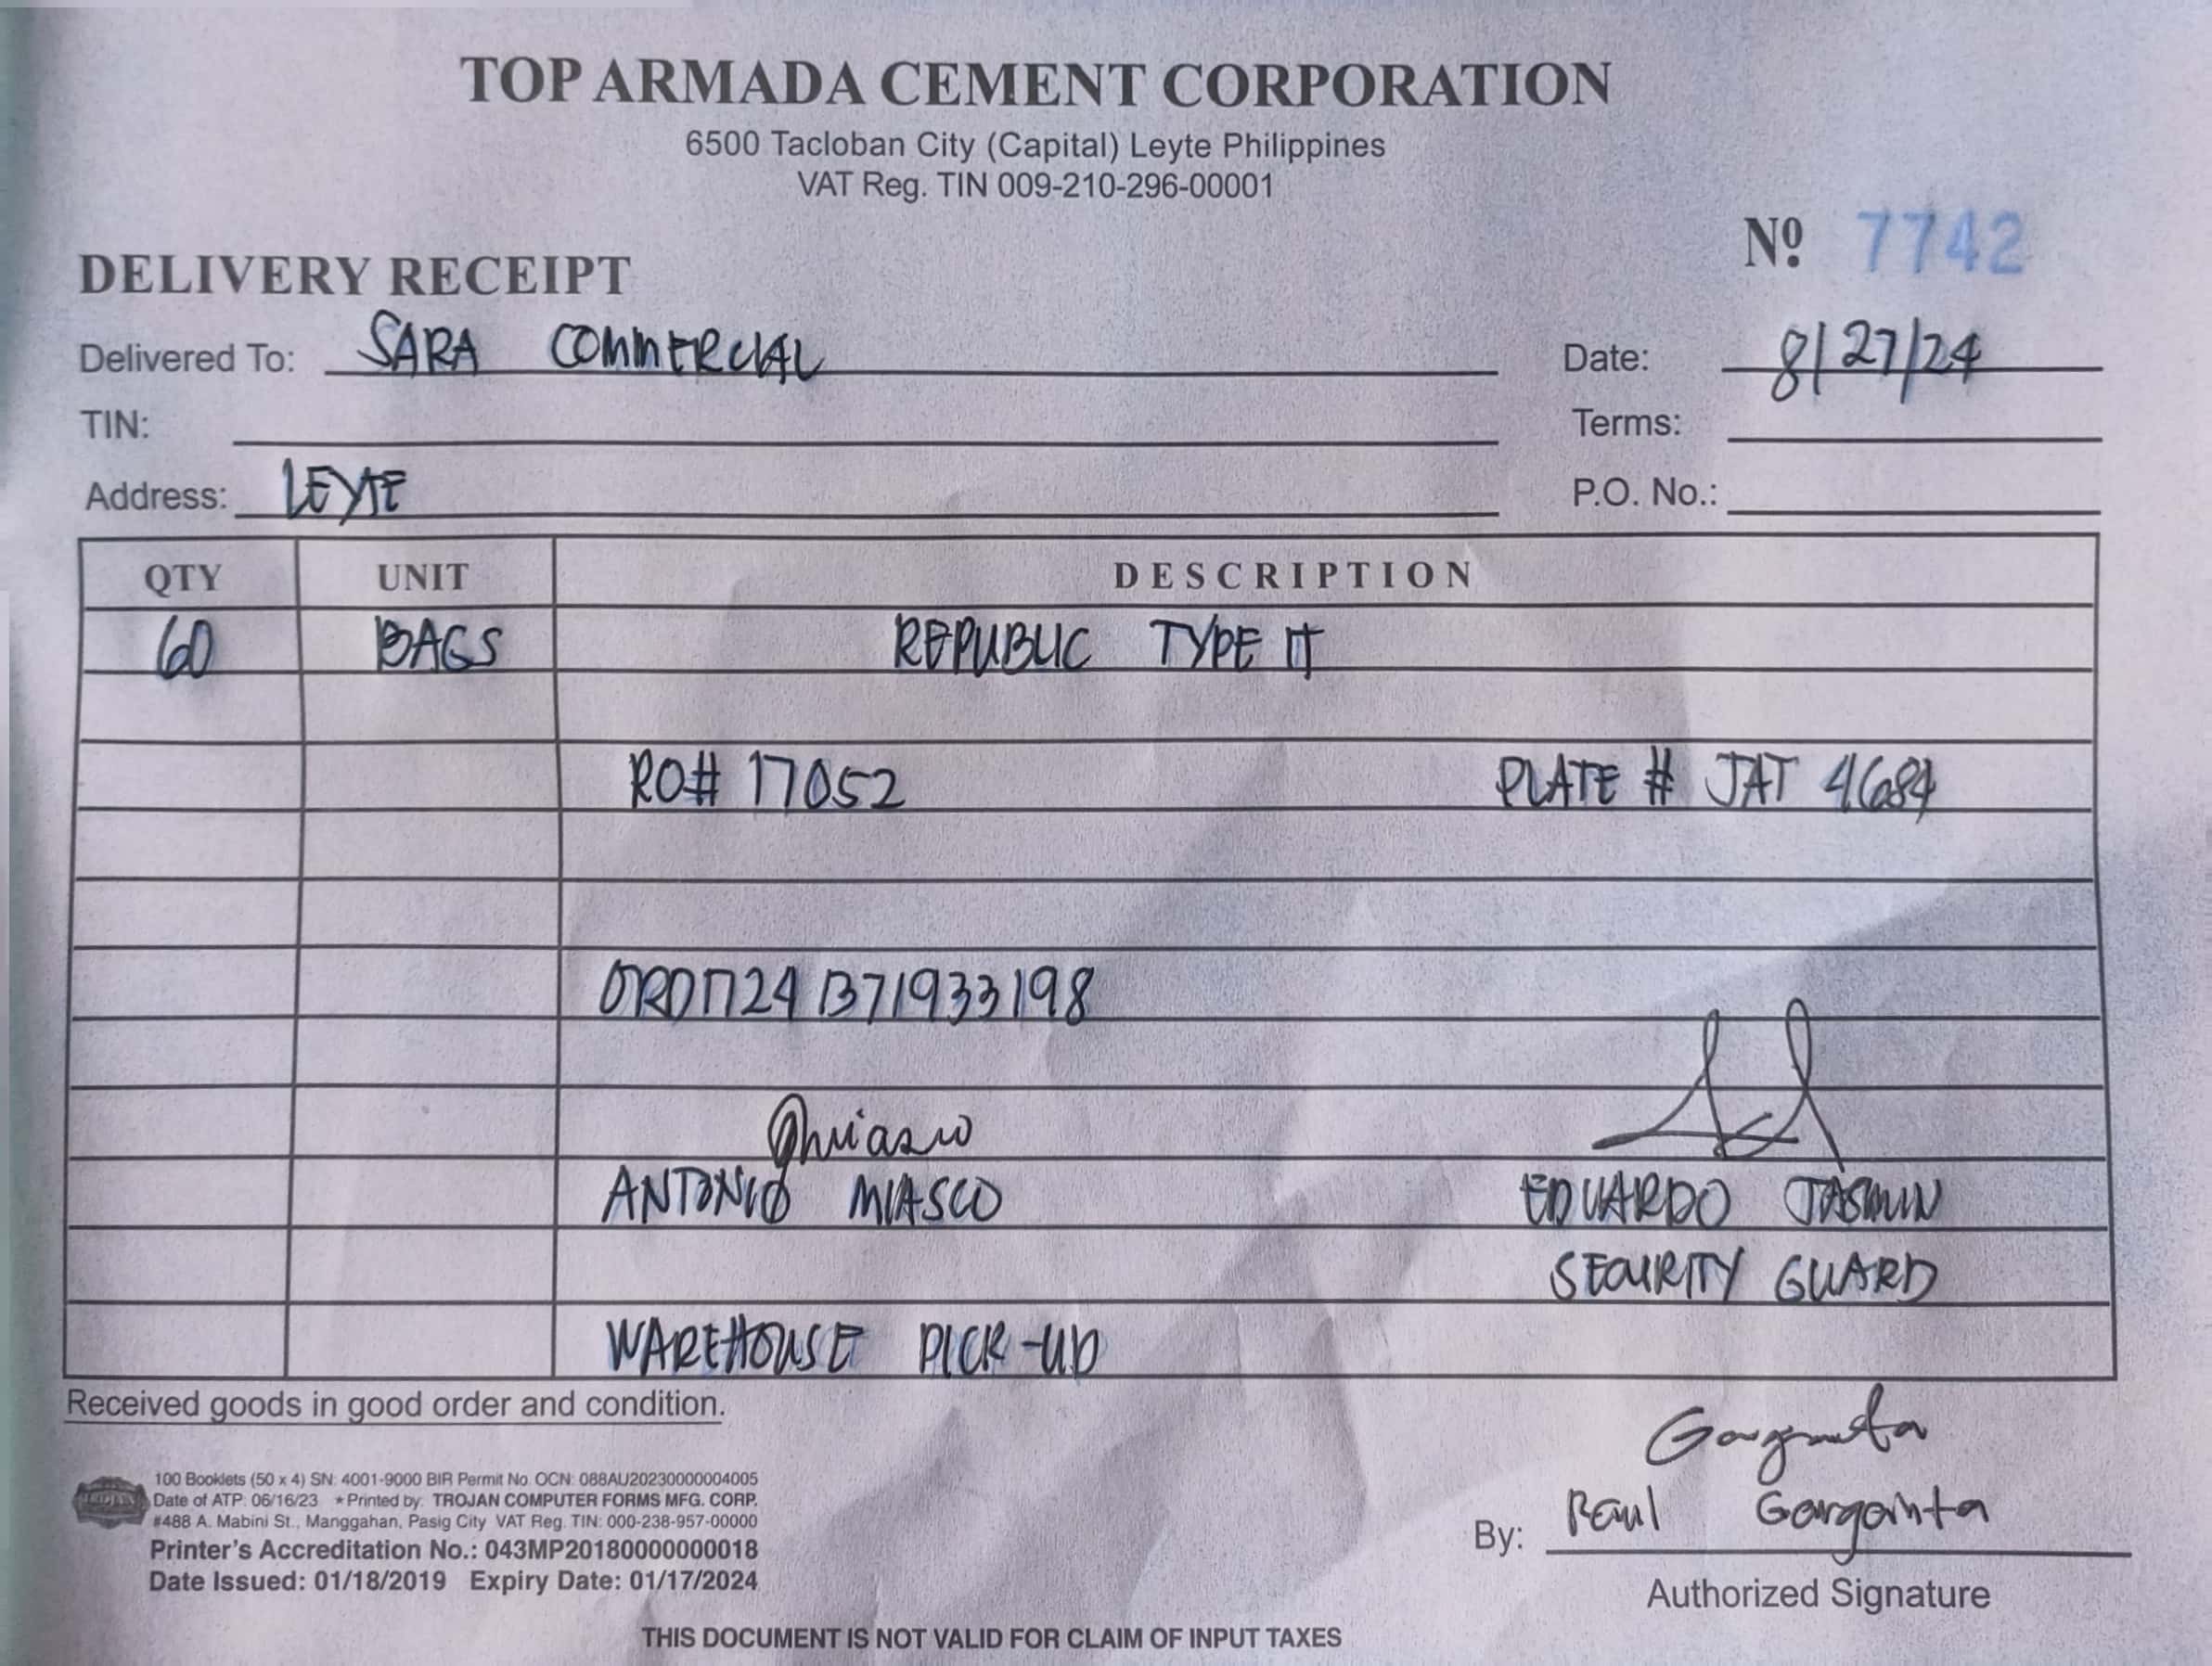 TOP ARMADA CEMENT CORPORATION
6500 Tacloban City (Capital) Leyte Philippines
VAT Reg. TIN 009-210-296-00001
Nº 7742
DELIVERY RECEIPT
Delivered To: SARA COMMERCIAL Date: 8/27/24
TIN: Terms:
Address: LEYTE P.O. No.:
QTY UNIT DESCRIPTION
60 BAGS REPUBLIC TYPE IT
RO# 17052 PLATE # JAT 4684
1371933198
ANTONIO MIASCO EDUARDO JASMIN
SECURITY GUARD
WAREHOUSE PICK-UP
Received goods in good order and condition.
100 Booklets (50 x 4) SN: 4001-9000 BIR Permit No. OCN: 088AU20230000004005
Date of ATP: 06/16/23 *Printed by: TROJAN COMPUTER FORMS MFG. CORP.
#488 A. Mabini St., Manggahan, Pasig City VAT Reg. TIN: 000-238-957-00000
Printer's Accreditation No.: 043MP20180000000018
Date Issued: 01/18/2019 Expiry Date: 01/17/2024
TROJAN
By: Raul Garganta
Authorized Signature
THIS DOCUMENT IS NOT VALID FOR CLAIM OF INPUT TAXES